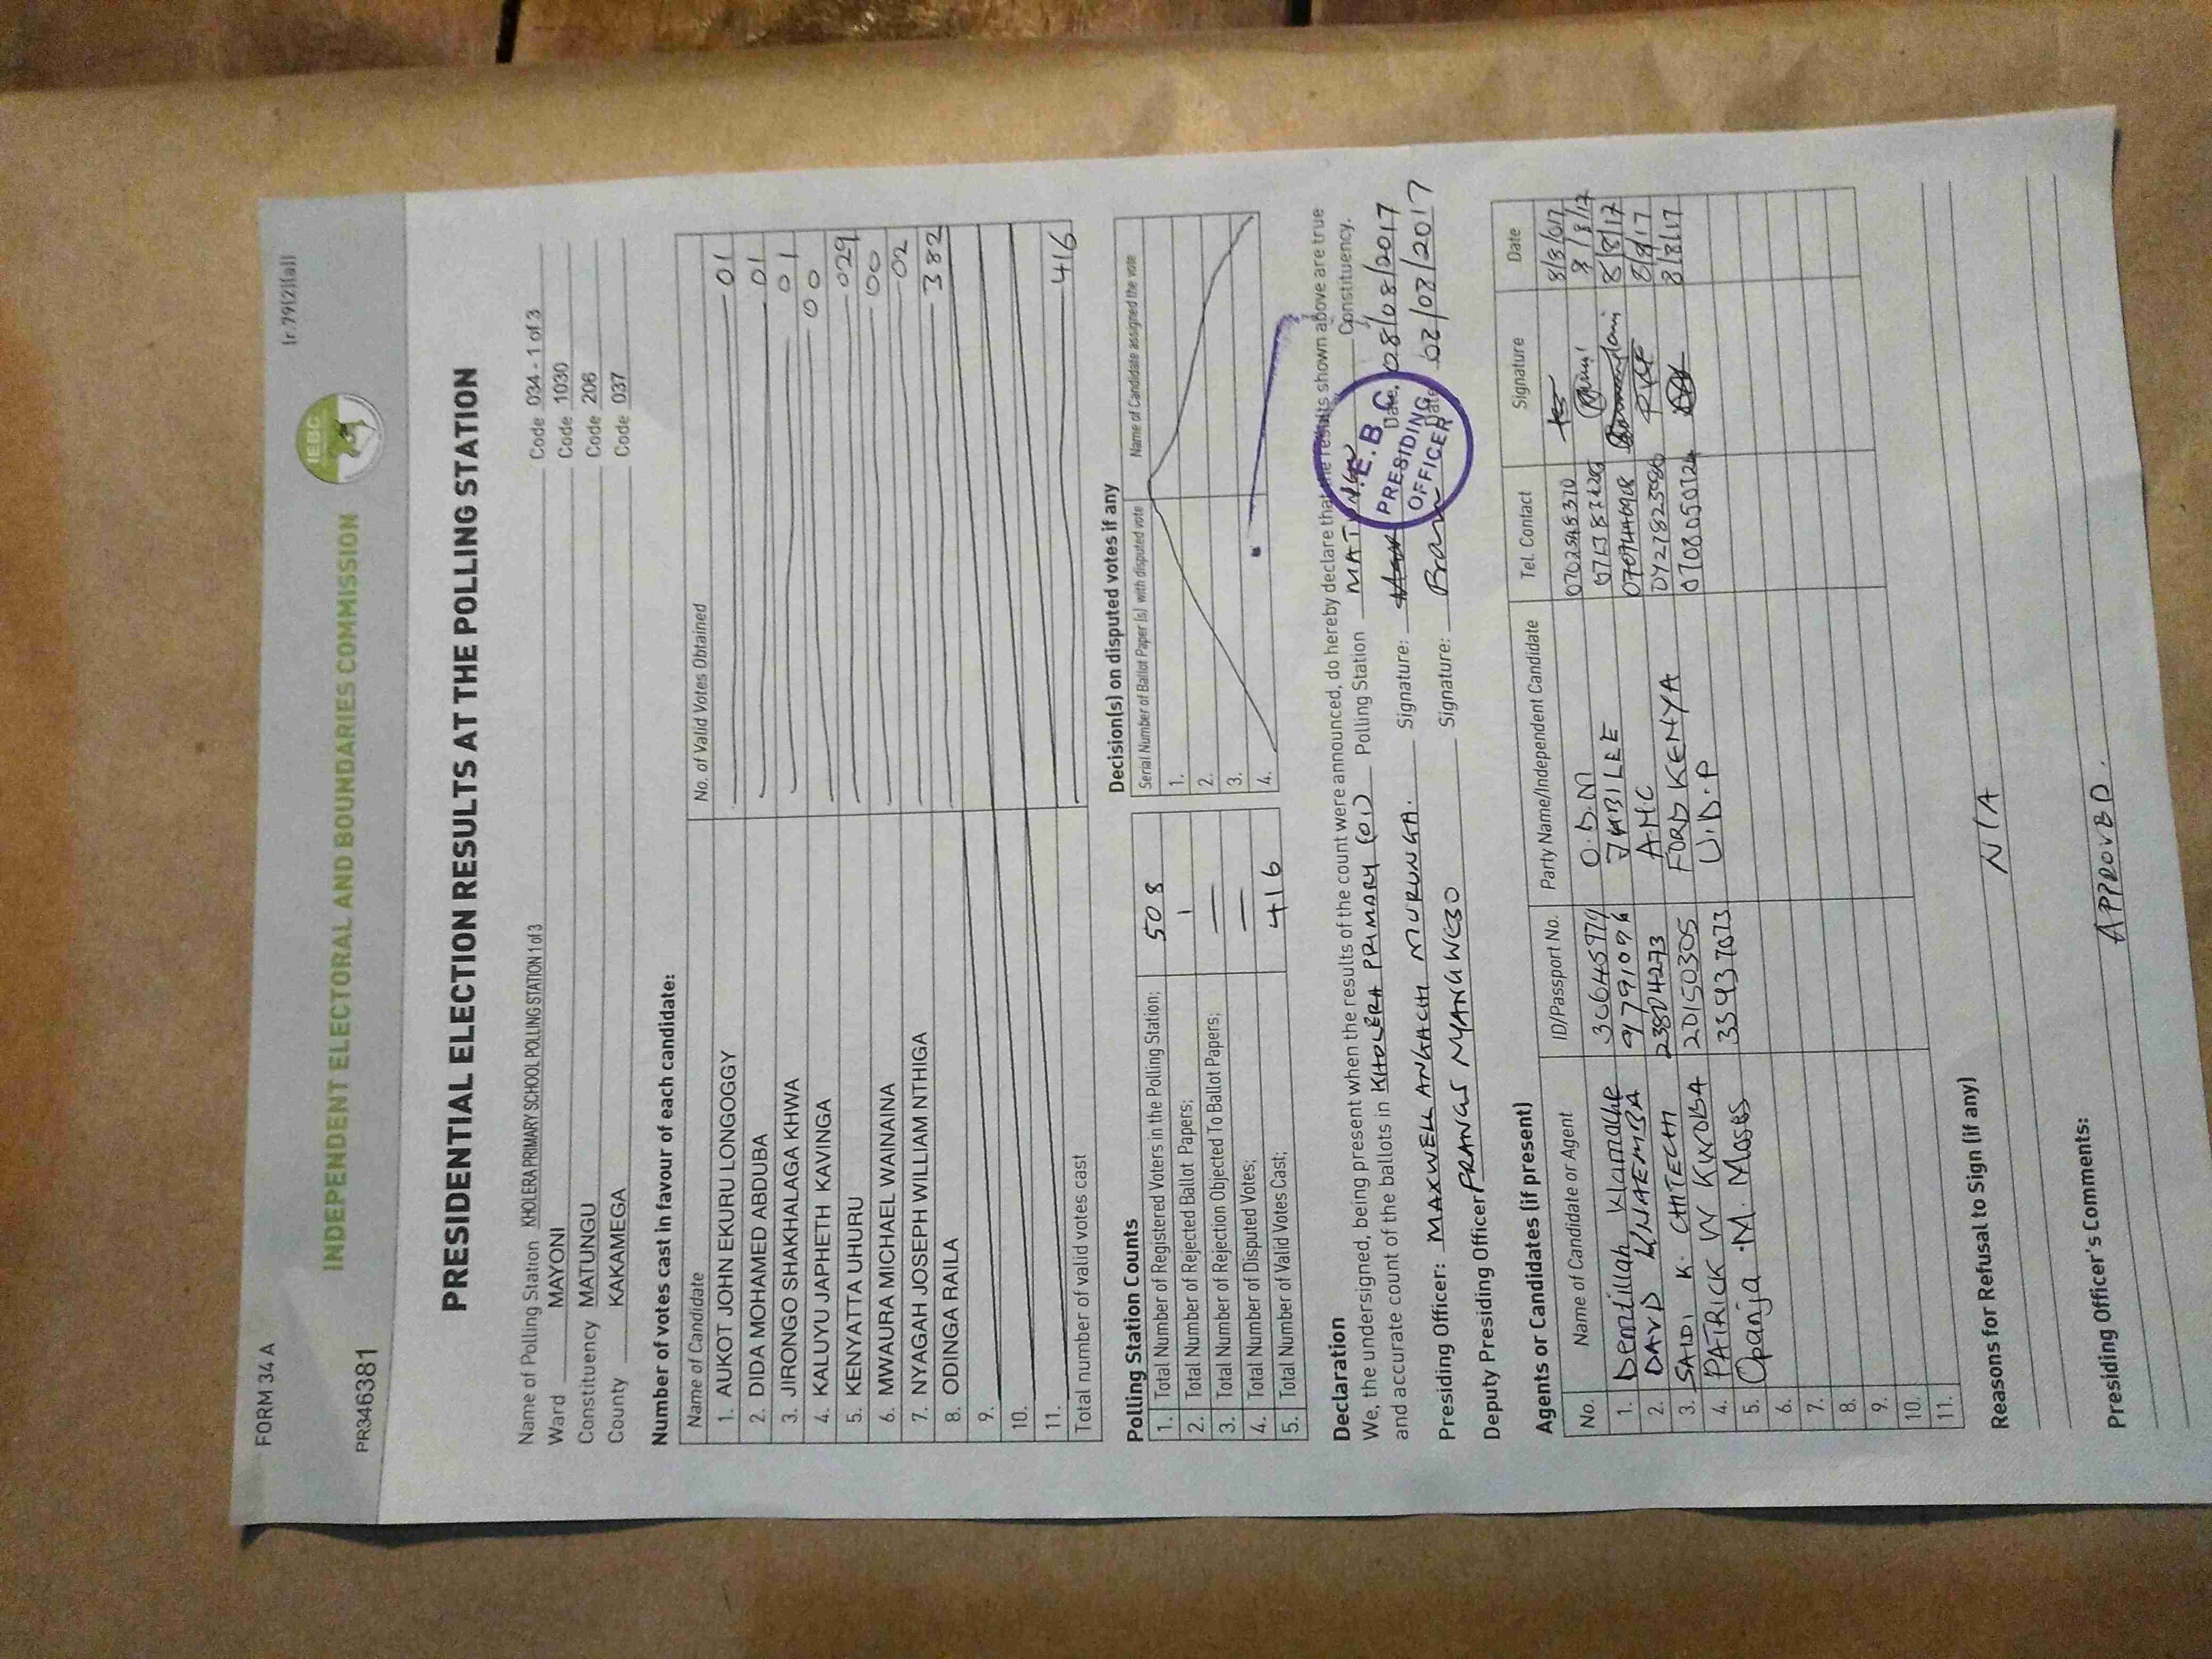 FORM 34 A
(r.79(2)(a))
PR346381
INDEPENDENT ELECTORAL AND BOUNDARIES COMMISSION
IEBC
PRESIDENTIAL ELECTION RESULTS AT THE POLLING STATION
Name of Polling Station KHOLERA PRIMARY SCHOOL POLLING STATION 1 of 3 Code 034 - 1 of 3
Ward MAYONI Code 1030
Constituency MATUNGU Code 206
County KAKAMEGA Code 037
Number of votes cast in favour of each candidate:
Name of Candidate No. of Valid Votes Obtained
1. AUKOT JOHN EKURU LONGOGGY 01
2. DIDA MOHAMED ABDUBA 01
3. JIRONGO SHAKHALAGA KHWA 01
4. KALUYU JAPHETH KAVINGA 00
5. KENYATTA UHURU 029
6. MWAURA MICHAEL WAINAINA 00
7. NYAGAH JOSEPH WILLIAM NTHIGA 02
8. ODINGA RAILA 382
9.
10.
11.
Total number of valid votes cast 416
Polling Station Counts
1. Total Number of Registered Voters in the Polling Station; 508
2. Total Number of Rejected Ballot Papers; 1
3. Total Number of Rejection Objected To Ballot Papers; —
4. Total Number of Disputed Votes; —
5. Total Number of Valid Votes Cast; 416
Decision(s) on disputed votes if any
Serial Number of Ballot Paper (s) with disputed vote Name of Candidate assigned the vote
1.
2.
3.
4.
Declaration
We, the undersigned, being present when the results of the count were announced, do hereby declare that the results shown above are true
and accurate count of the ballots in KHOLERA PRIMARY (01) Polling Station MATUNGU Constituency.
Presiding Officer: MAXWELL ANGACHI MURUNGA. Signature: Date: 08/08/2017
Deputy Presiding Officer PRANGS NYANGWESO Signature: Date 08/08/2017
I.E.B.C
PRESIDING
OFFICER
Agents or Candidates (if present)
No. Name of Candidate or Agent ID/Passport No. Party Name/Independent Candidate Tel. Contact Signature Date
1. O.D.M 8/8/017
2. DAVID JUBILEE 8/8/17
3. SAIDI K. CHITECHI 23804273 AMC 8/8/17
4. PATRICK W KWOBA 20150305 FORD KENYA 8/8/17
5. Opanja .M. Moses U.D.P 8/8/17
6.
7.
8.
9.
10.
11.
Reasons for Refusal to Sign (if any)
N/A
Presiding Officer's Comments:
APPROVED.